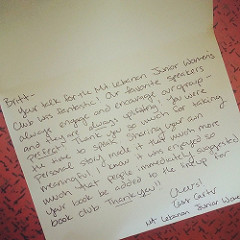 Britt-
Your talk for the Mt. Lebanon Junior Women's
Club was fantastic! Our favorite speakers
always engage and encourage our group -
and they are always uplifting! You were
perfect! Thank you so much for taking
the time to speak. Sharing your own
personal story made it that much more
meaningful. I know it was enjoyed so
much that people immediately suggested
your book be added to the lineup for
book club. Thank you!!
Cheers!
Mt. Lebanon Junior Women